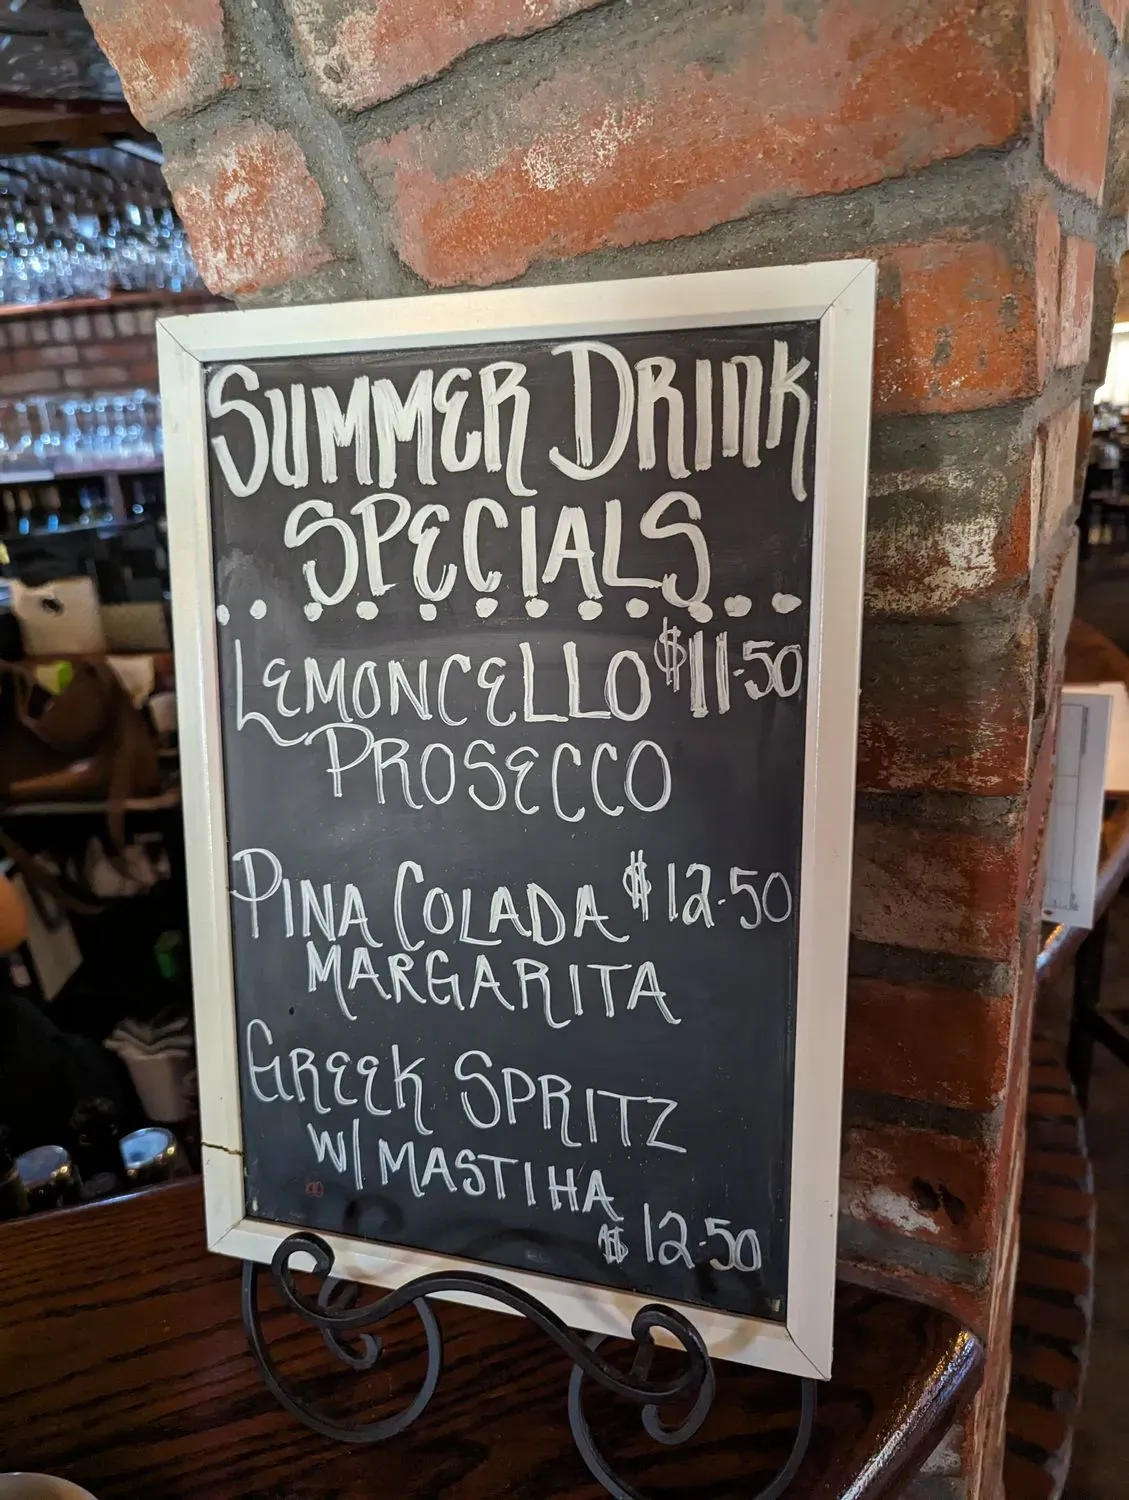 SUMMER DRINK
SPECIALS
LEMONCELLO $11.50
PROSECCO
PINA COLADA $12.50
MARGARITA
GREEK SPRITZ
W/ MASTIHA
$12.50